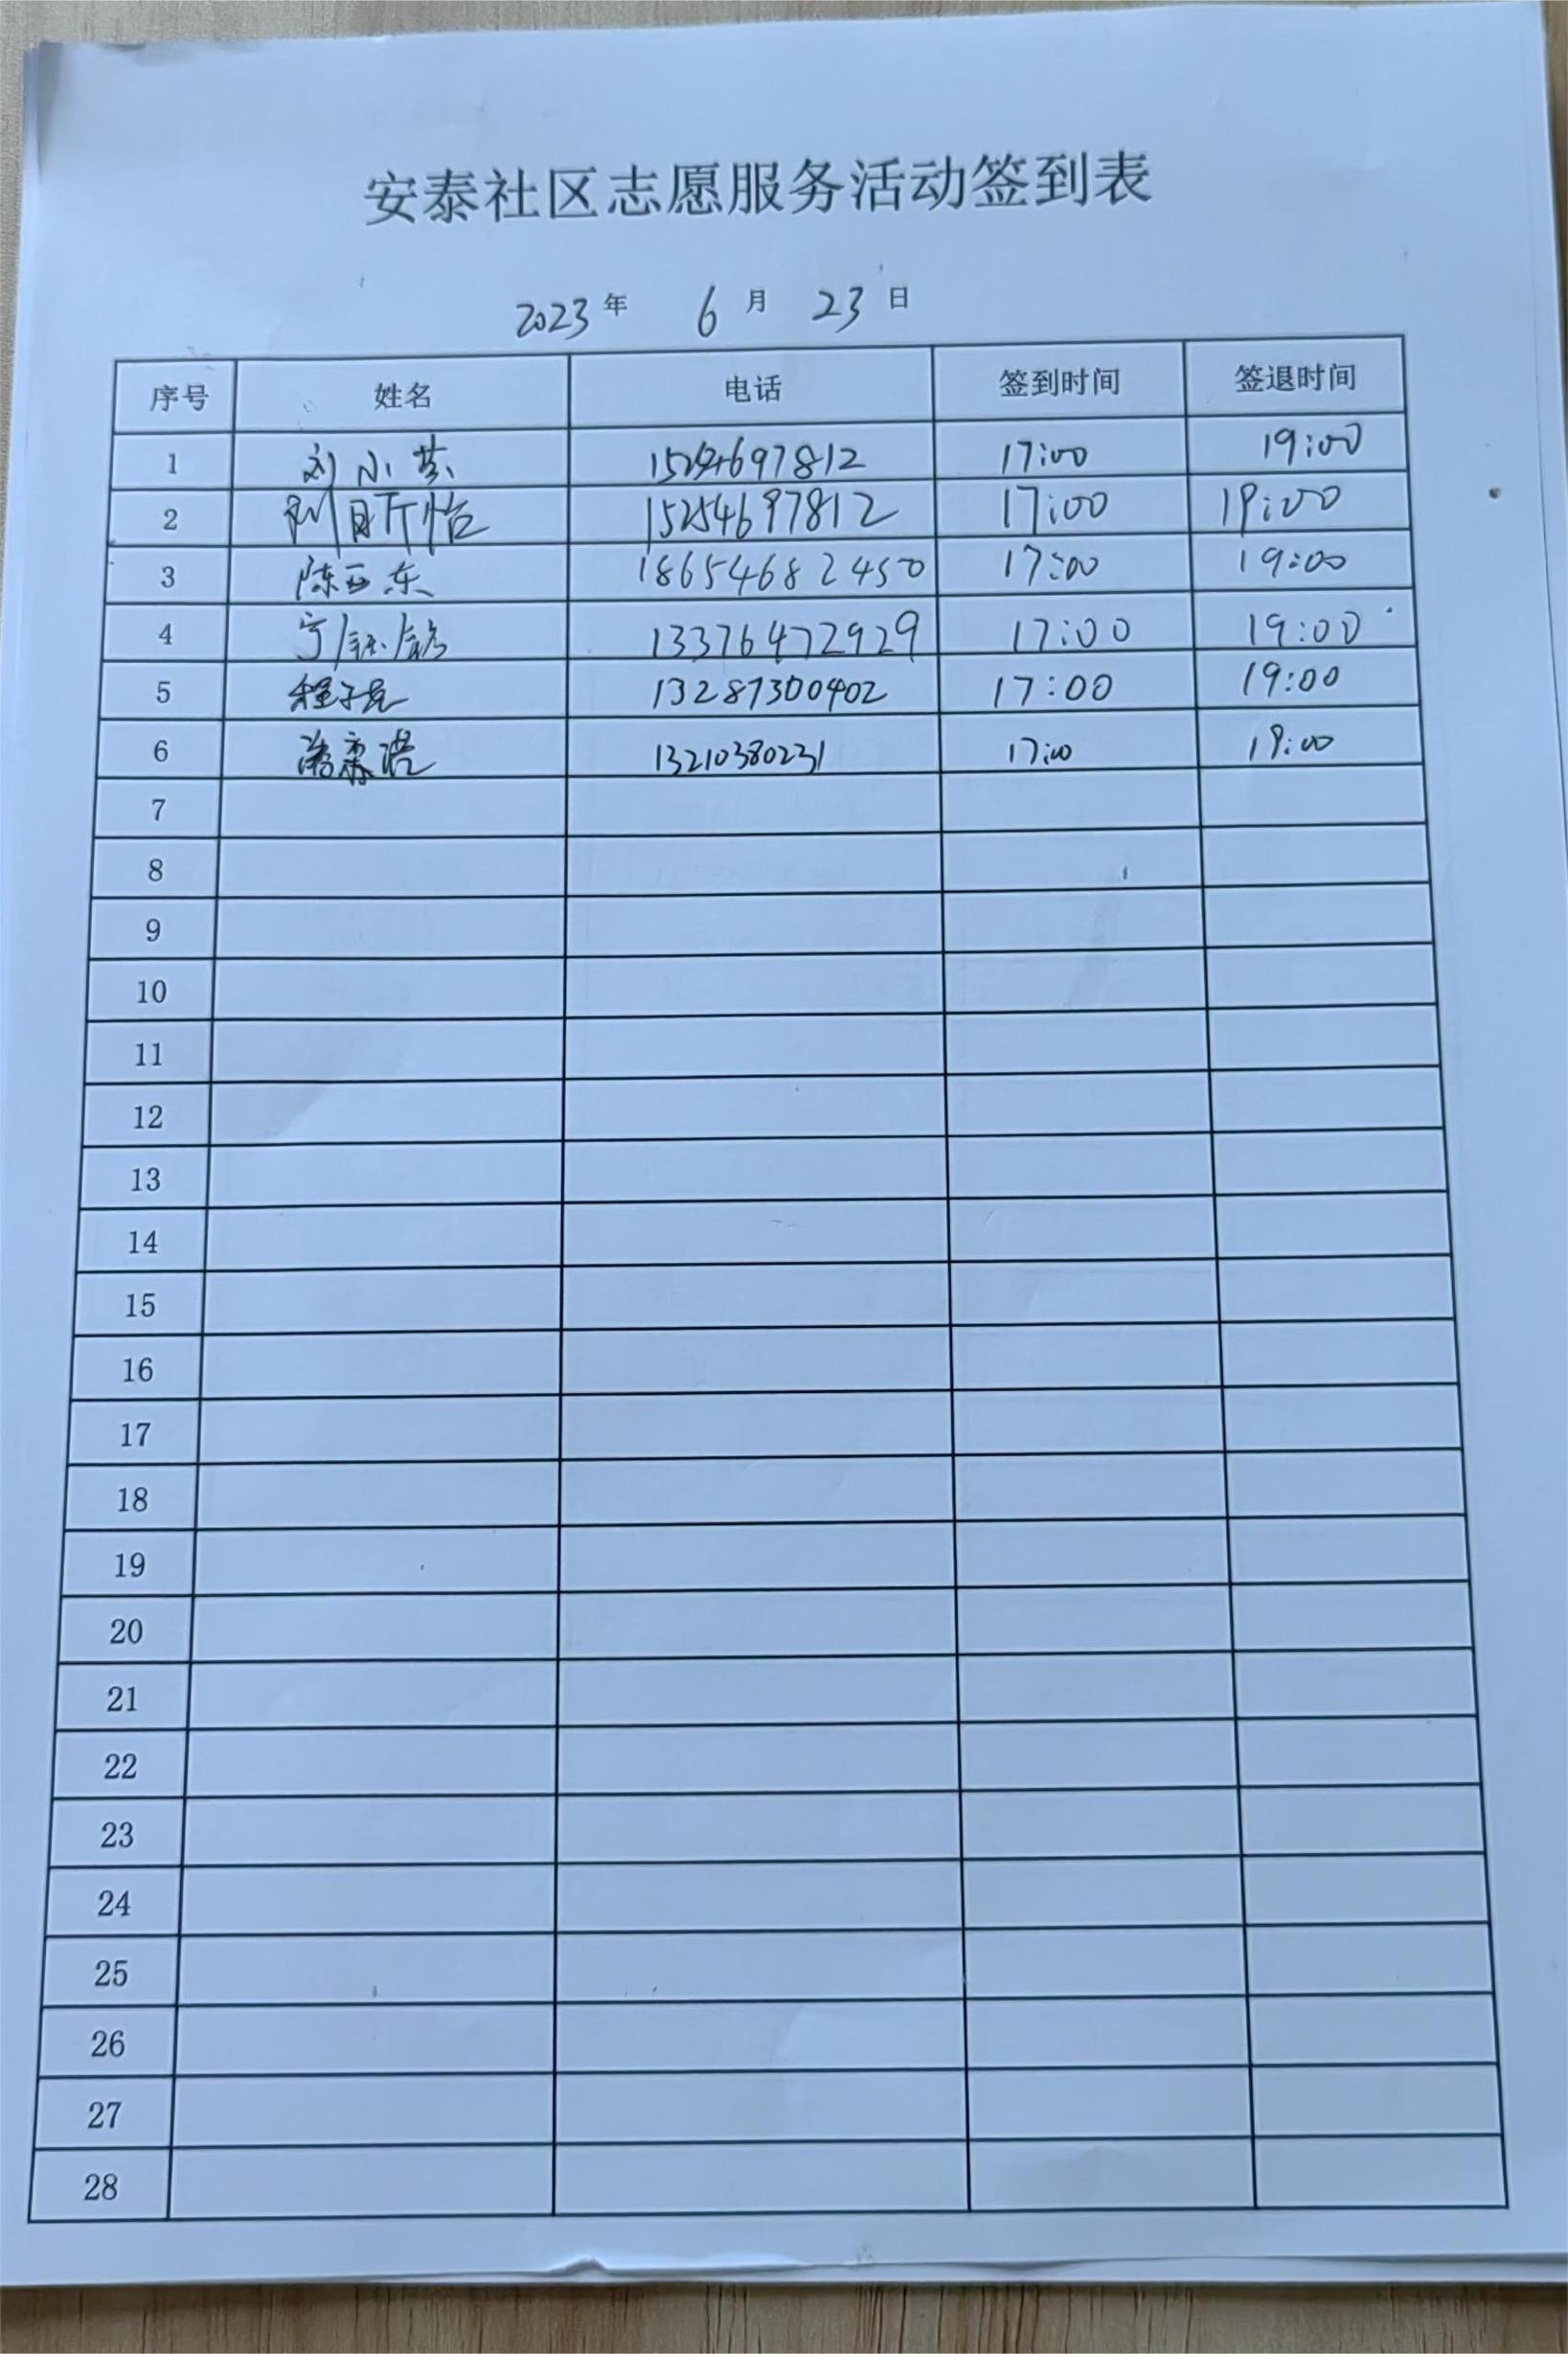 安泰社区志愿服务活动签到表
2023 年 6 月 23 日
序号 姓名 电话 签到时间 签退时间
1 刘小芸 15254697812 17:00 19:00
2 15254697812 17:00 19:00
3 陈亚东 18654682450 17:00 19:00
4 宁 13376472929 17:00 19:00
5 程子昆 13287300402 17:00 19:00
6 13210380231 17:00 19:00
7
8
9
10
11
12
13
14
15
16
17
18
19
20
21
22
23
24
25
26
27
28